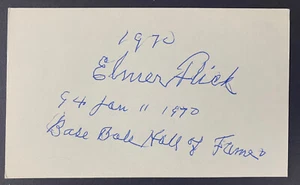 1970
Elmer Flick
94 Jan 11 1970
Base Ball Hall of Famer